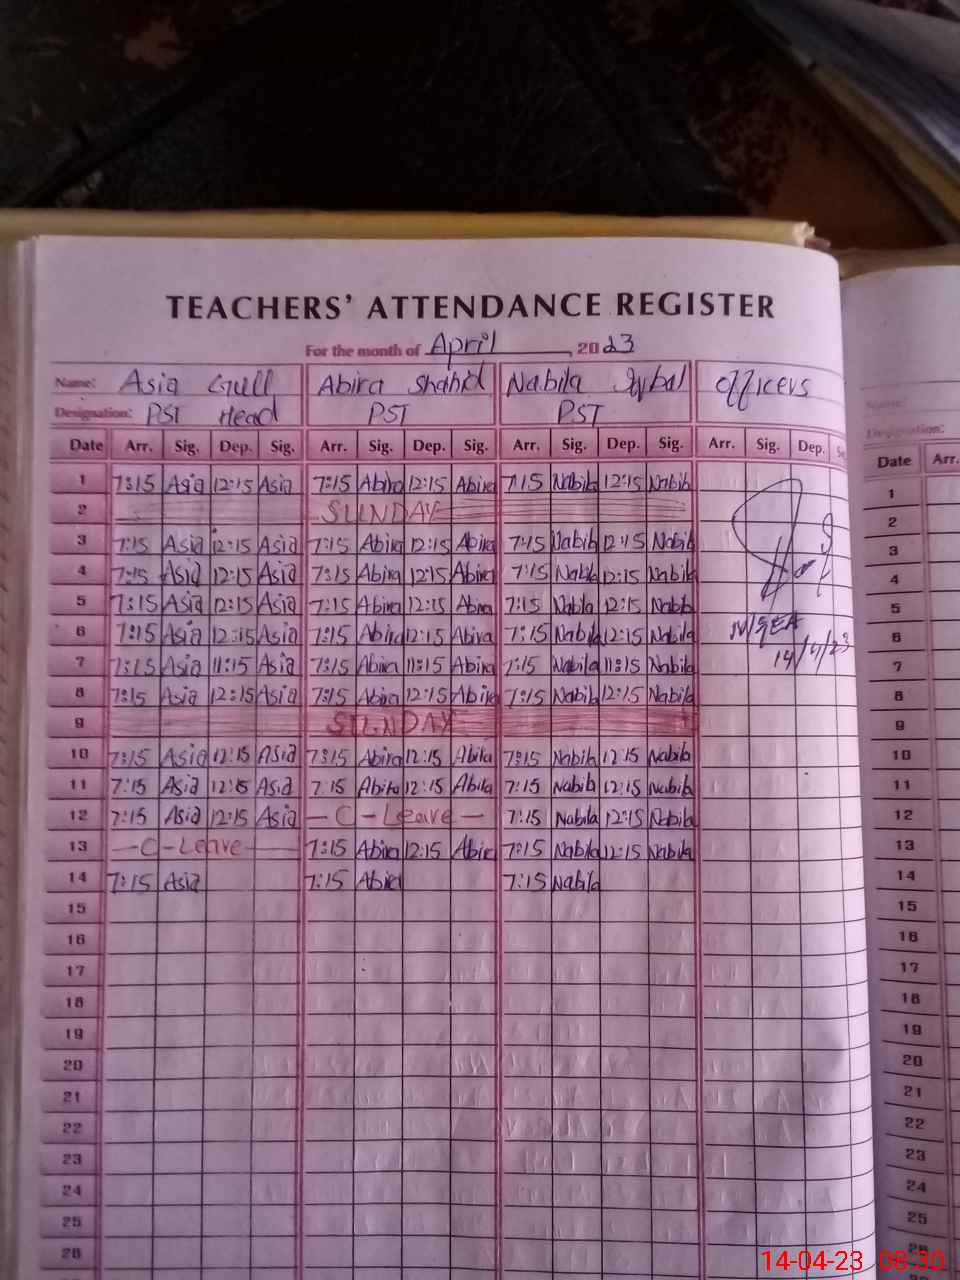 TEACHERS' ATTENDANCE REGISTER
For the month of April, 2023
Name: Asia Gull Abira Shahid Nabila Iqbal Officers
Designation: PST Head PST PST
Name:
Designation:
Date Arr. Sig. Dep. Sig. Arr. Sig. Dep. Sig. Arr. Sig. Dep. Sig. Arr. Sig. Dep.
Date Arr.
1 7:15 Asia 12:15 Asia 7:15 Abira 12:15 Abira 7:15 Nabila 12:15 Nabila
2 SUNDAY
3 7:15 Asia 12:15 Asia 7:15 Abira 12:15 Abira 7:15 Nabila 12:15 Nabila
4 7:15 Asia 12:15 Asia 7:15 Abira 12:15 Abira 7:15 Nabila 12:15 Nabila
5 7:15 Asia 12:15 Asia 7:15 Abira 12:15 Abira 7:15 Nabila 12:15 Nabila
6 7:15 Asia 12:15 Asia 7:15 Abira 12:15 Abira 7:15 Nabila 12:15 Nabila
14/4/23
7 7:15 Asia 11:15 Asia 7:15 Abira 11:15 Abira 7:15 Nabila 11:15 Nabila
8 7:15 Asia 12:15 Asia 7:15 Abira 12:15 Abira 7:15 Nabila 12:15 Nabila
9 SUNDAY
10 7:15 Asia 12:15 Asia 7:15 Abira 12:15 Abira 7:15 Nabila 12:15 Nabila
11 7:15 Asia 12:15 Asia 7:15 Abira 12:15 Abira 7:15 Nabila 12:15 Nabila
12 7:15 Asia 12:15 Asia - C - Leave - 7:15 Nabila 12:15 Nabila
13 - C - Leave - 7:15 Abira 12:15 Abira 7:15 Nabila 12:15 Nabila
14 7:15 Asia 7:15 Abira 7:15 Nabila
15
16
17
18
19
20
21
22
23
24
25
26
1
2
3
4
5
6
7
8
9
10
11
12
13
14
15
16
17
18
19
20
21
22
23
24
25
26
14-04-23 08:30